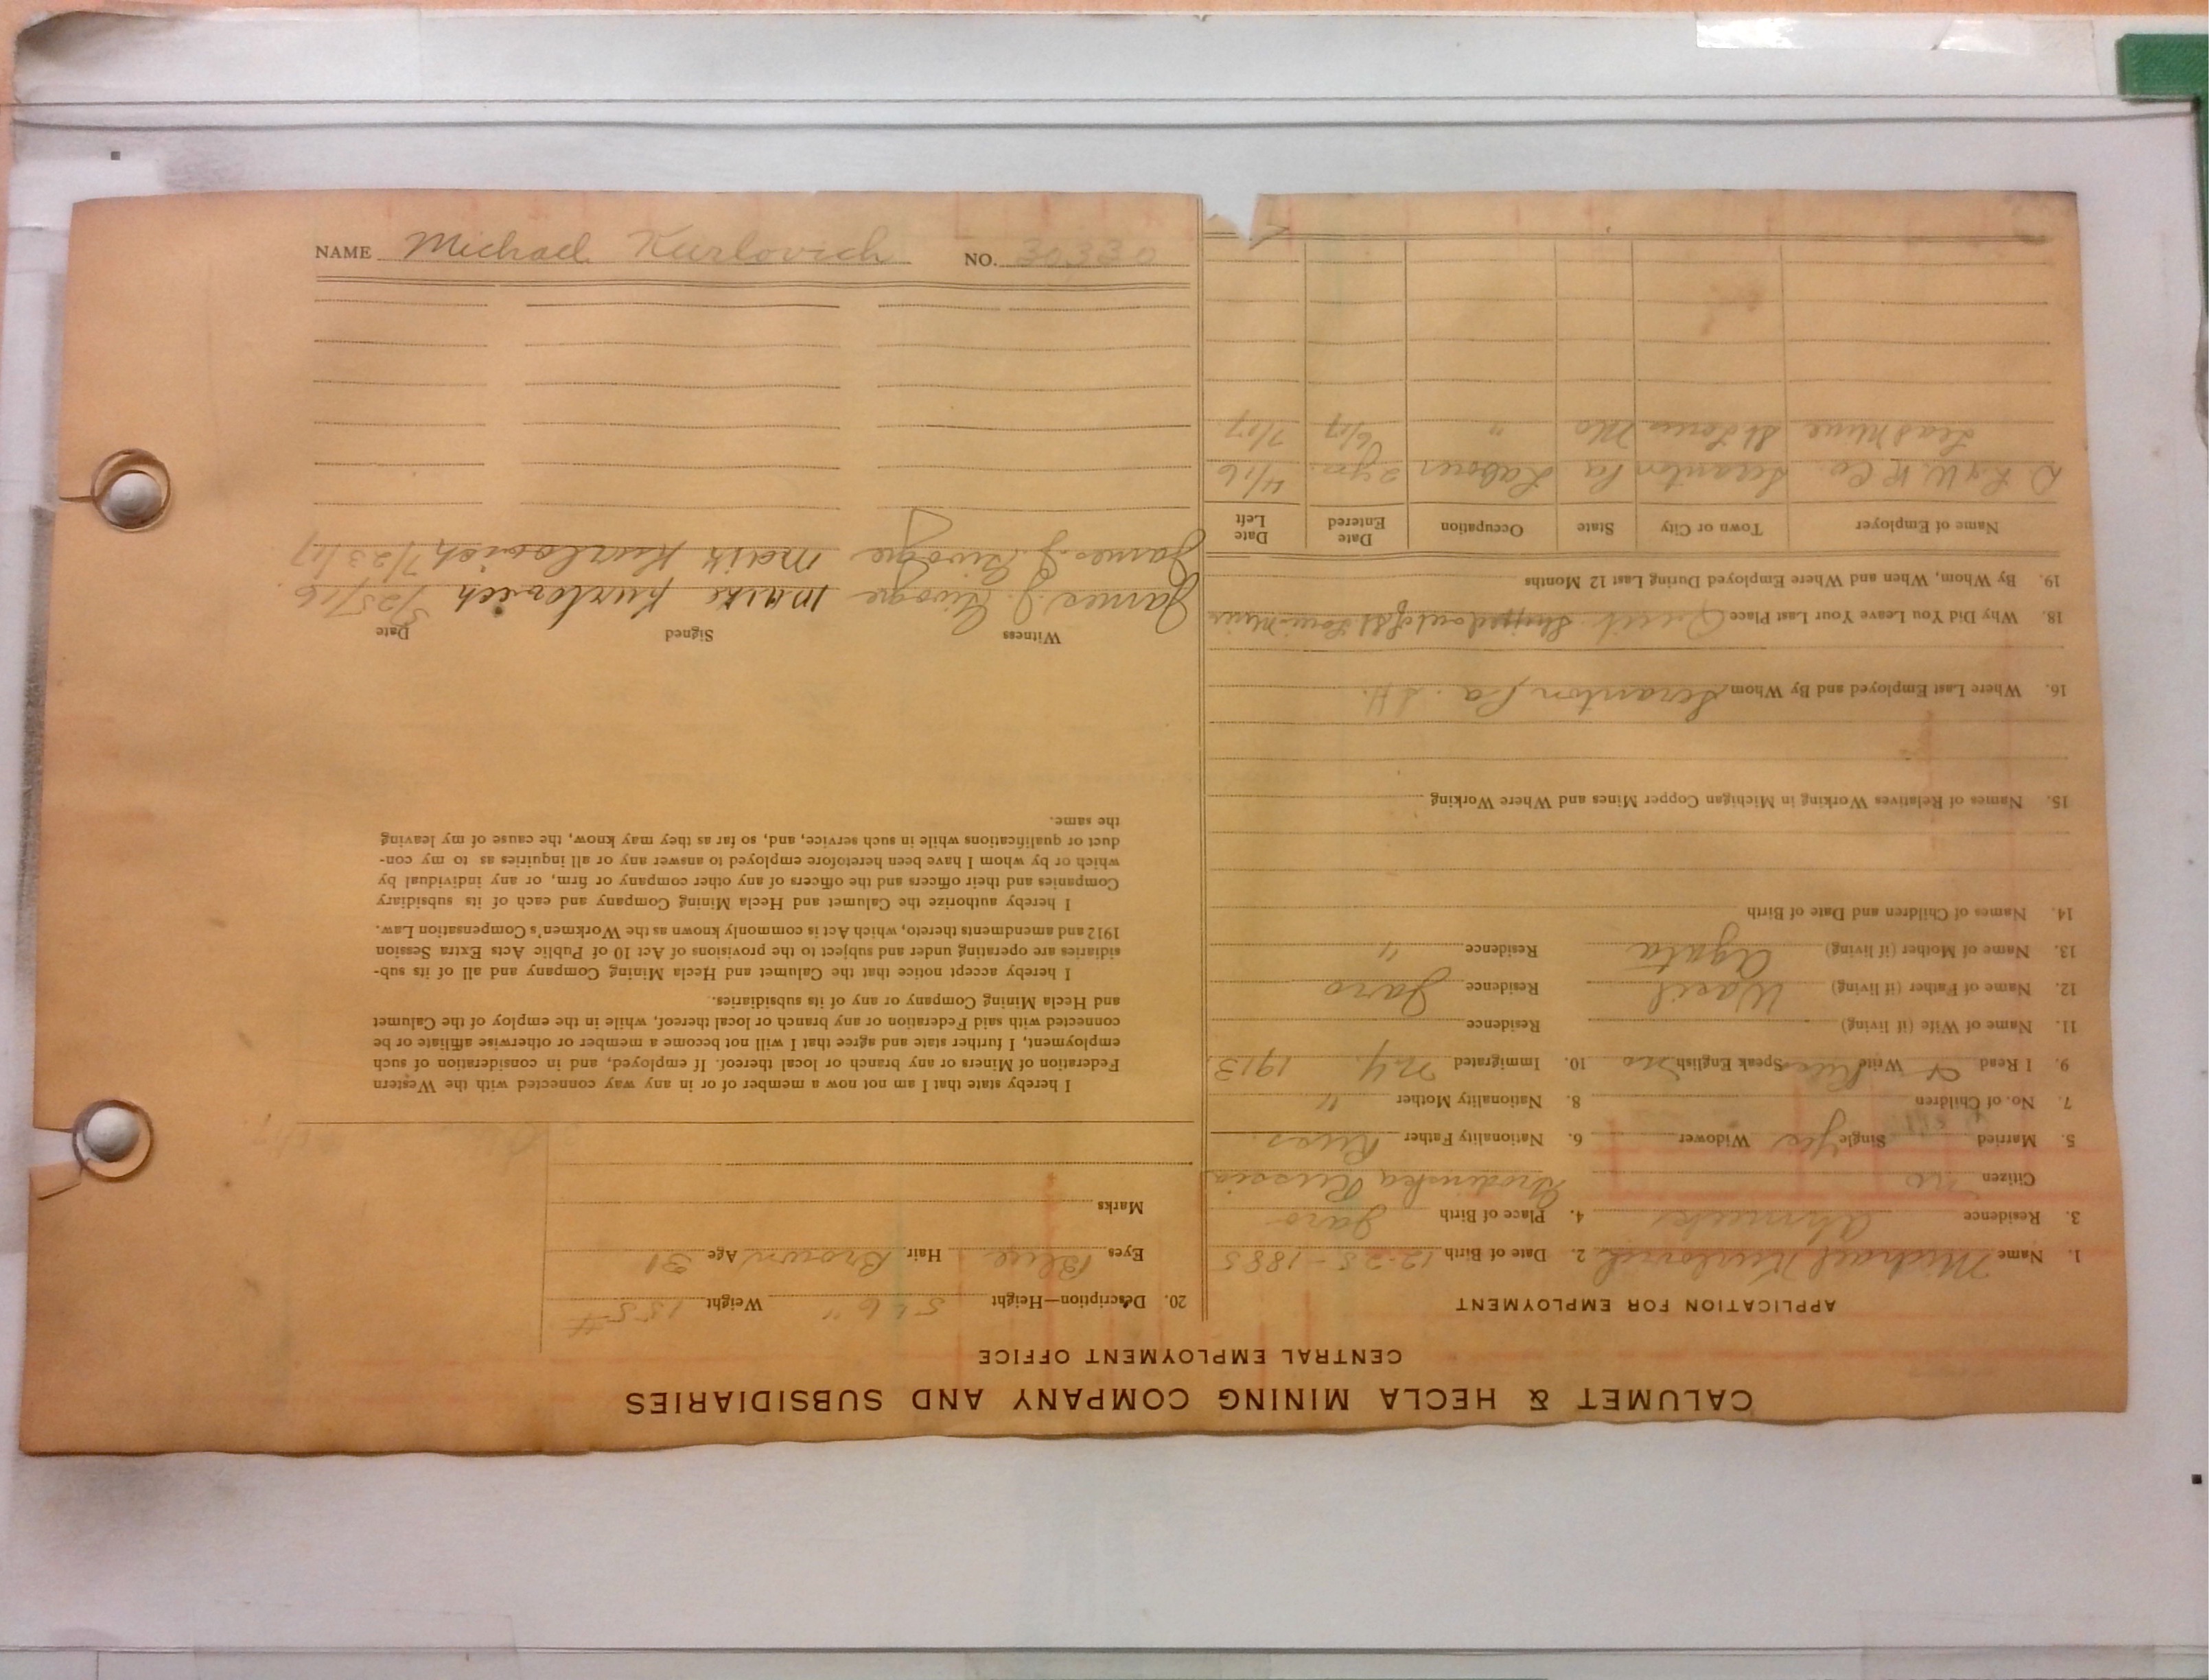 CALUMET & HECLA MINING COMPANY AND SUBSIDIARIES
CENTRAL EMPLOYMENT OFFICE
APPLICATION FOR EMPLOYMENT
1. Name Michael Kurlovich 2. Date of Birth 12-25-1885
3. Residence Ahmeek 4. Place of Birth Jaro
Citizen no Grodinska Russia
5. Married Single Yes Widower 6. Nationality Father Russ.
7. No. of Children 8. Nationality Mother "
9. I Read Write Russ Speak English no 10. Immigrated N.Y. 1913
11. Name of Wife (if living) Residence
12. Name of Father (if living) Wasil Residence Jaro
13. Name of Mother (if living) Agata Residence "
14. Names of Children and Date of Birth
15. Names of Relatives Working in Michigan Copper Mines and Where Working
16. Where Last Employed and By Whom Scranton, Pa.
18. Why Did You Leave Your Last Place Quit
19. By Whom, When and Where Employed During Last 12 Months
Name of Employer Town or City State Occupation Date Entered Date Left
D L & W. R Co. Scranton Pa Laborer 2 yrs. 4/16
Lead Mine St Louis Mo " 6/17 7/17
20. Description—Height 5' 6" Weight 155#
Eyes Blue Hair Brown Age 31
Marks
I hereby state that I am not now a member of or in any way connected with the Western
Federation of Miners or any branch or local thereof. If employed, and in consideration of such
employment, I further state and agree that I will not become a member or otherwise affiliate or be
connected with said Federation or any branch or local thereof, while in the employ of the Calumet
and Hecla Mining Company or any of its subsidiaries.
I hereby accept notice that the Calumet and Hecla Mining Company and all of its sub-
sidiaries are operating under and subject to the provisions of Act 10 of Public Acts Extra Session
1912 and amendments thereto, which Act is commonly known as the Workmen's Compensation Law.
I hereby authorize the Calumet and Hecla Mining Company and each of its subsidiary
Companies and their officers and the officers of any other company or firm, or any individual by
which or by whom I have been heretofore employed to answer any or all inquiries as to my con-
duct or qualifications while in such service, and, so far as they may know, the cause of my leaving
the same.
Witness Signed Date
James J. Maike Kurlovich 5/25/16
James J. Maik Kurlovich 7/23/17
NAME Michael Kurlovich NO. 30330